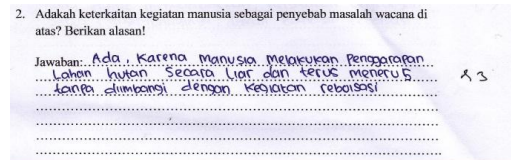 2. Adakah keterkaitan kegiatan manusia sebagai penyebab masalah wacana di
atas? Berikan alasan!
Jawaban: Ada, Karena manusia melakukan Penggarapan
Lahan hutan Secara Liar dan terus menerus
tanpa diimbangi dengan kegiatan reboisasi
3